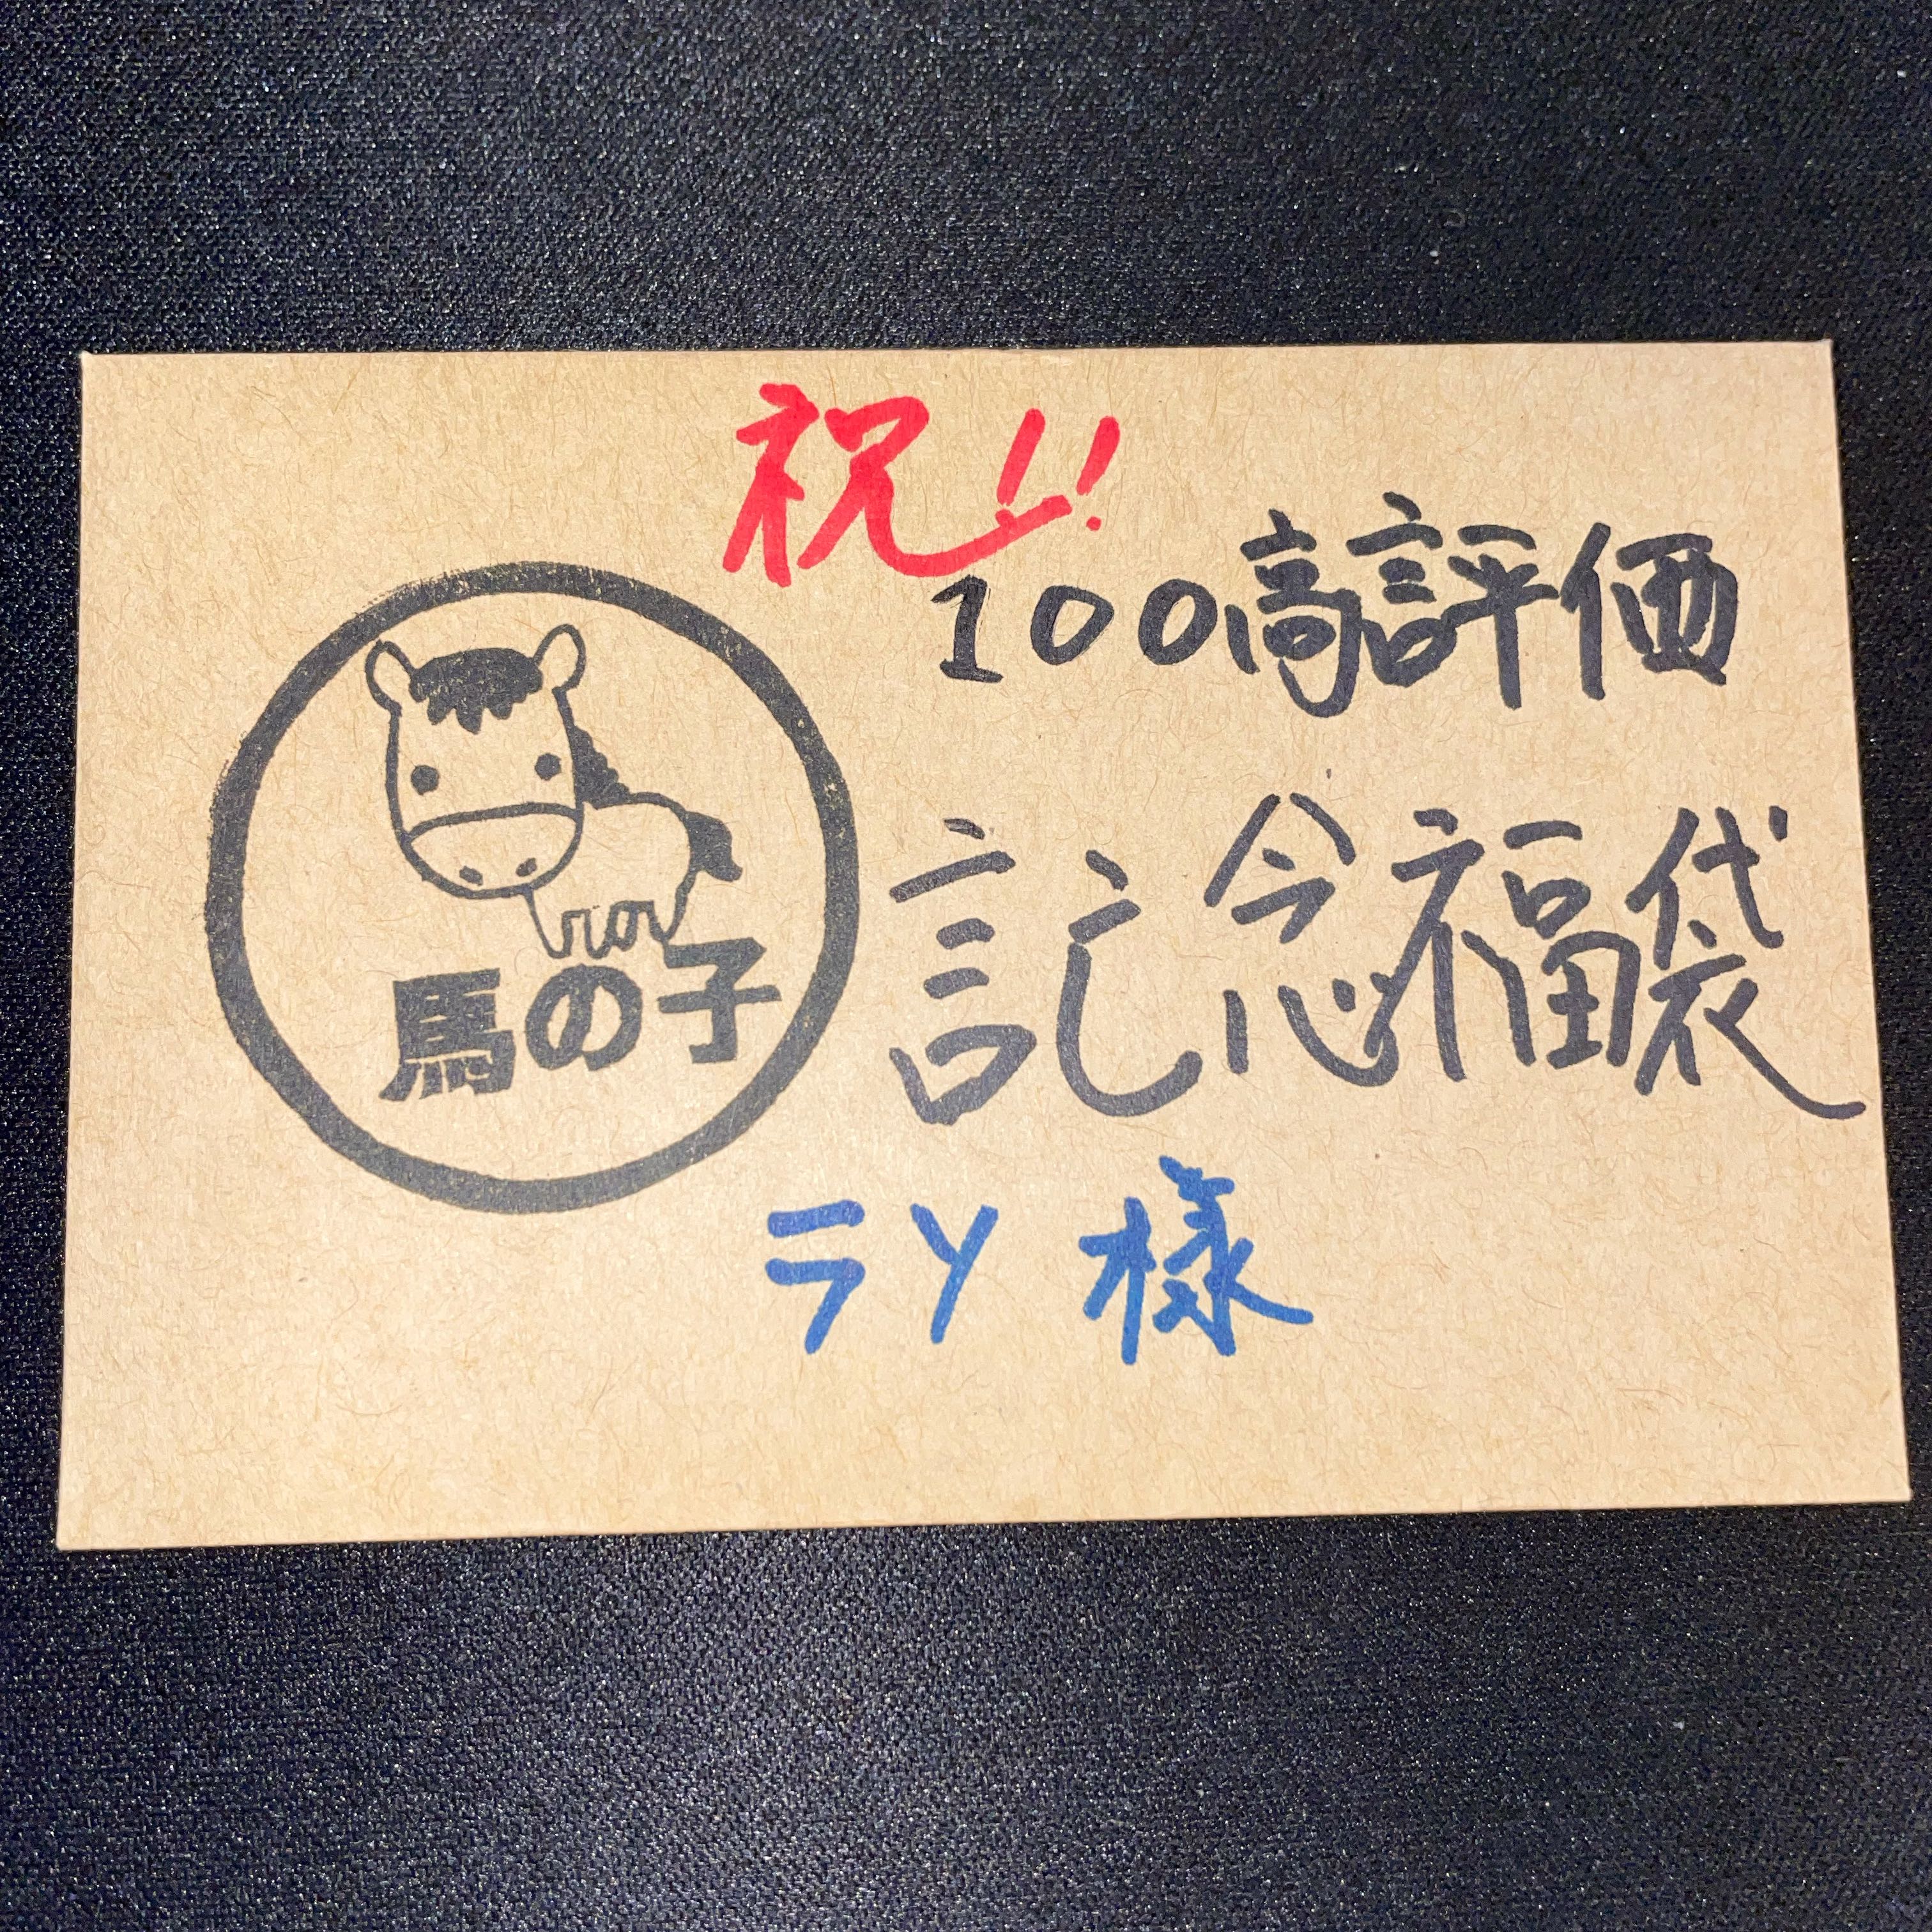 祝!!
100高評価
記念福袋
馬の子
ラY 様